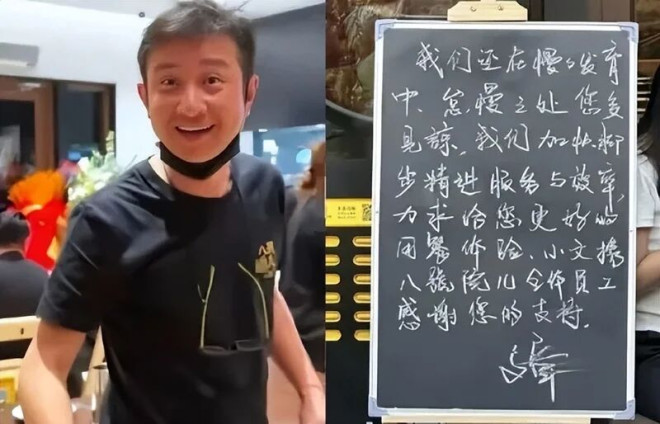 我们还在慢慢发育
中、怠慢之处您多
见谅,我们加快脚
步精进服务与效率,
力求给您更好的
用餐体验、小文携
八號院儿全体员工
感谢您的支持.